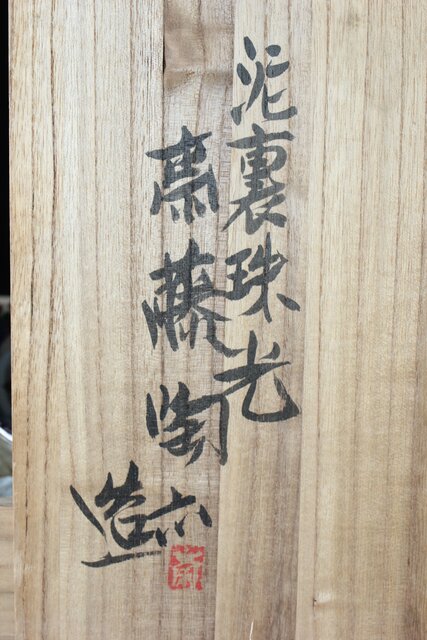 泥裏珠光
斎藤陶
六造